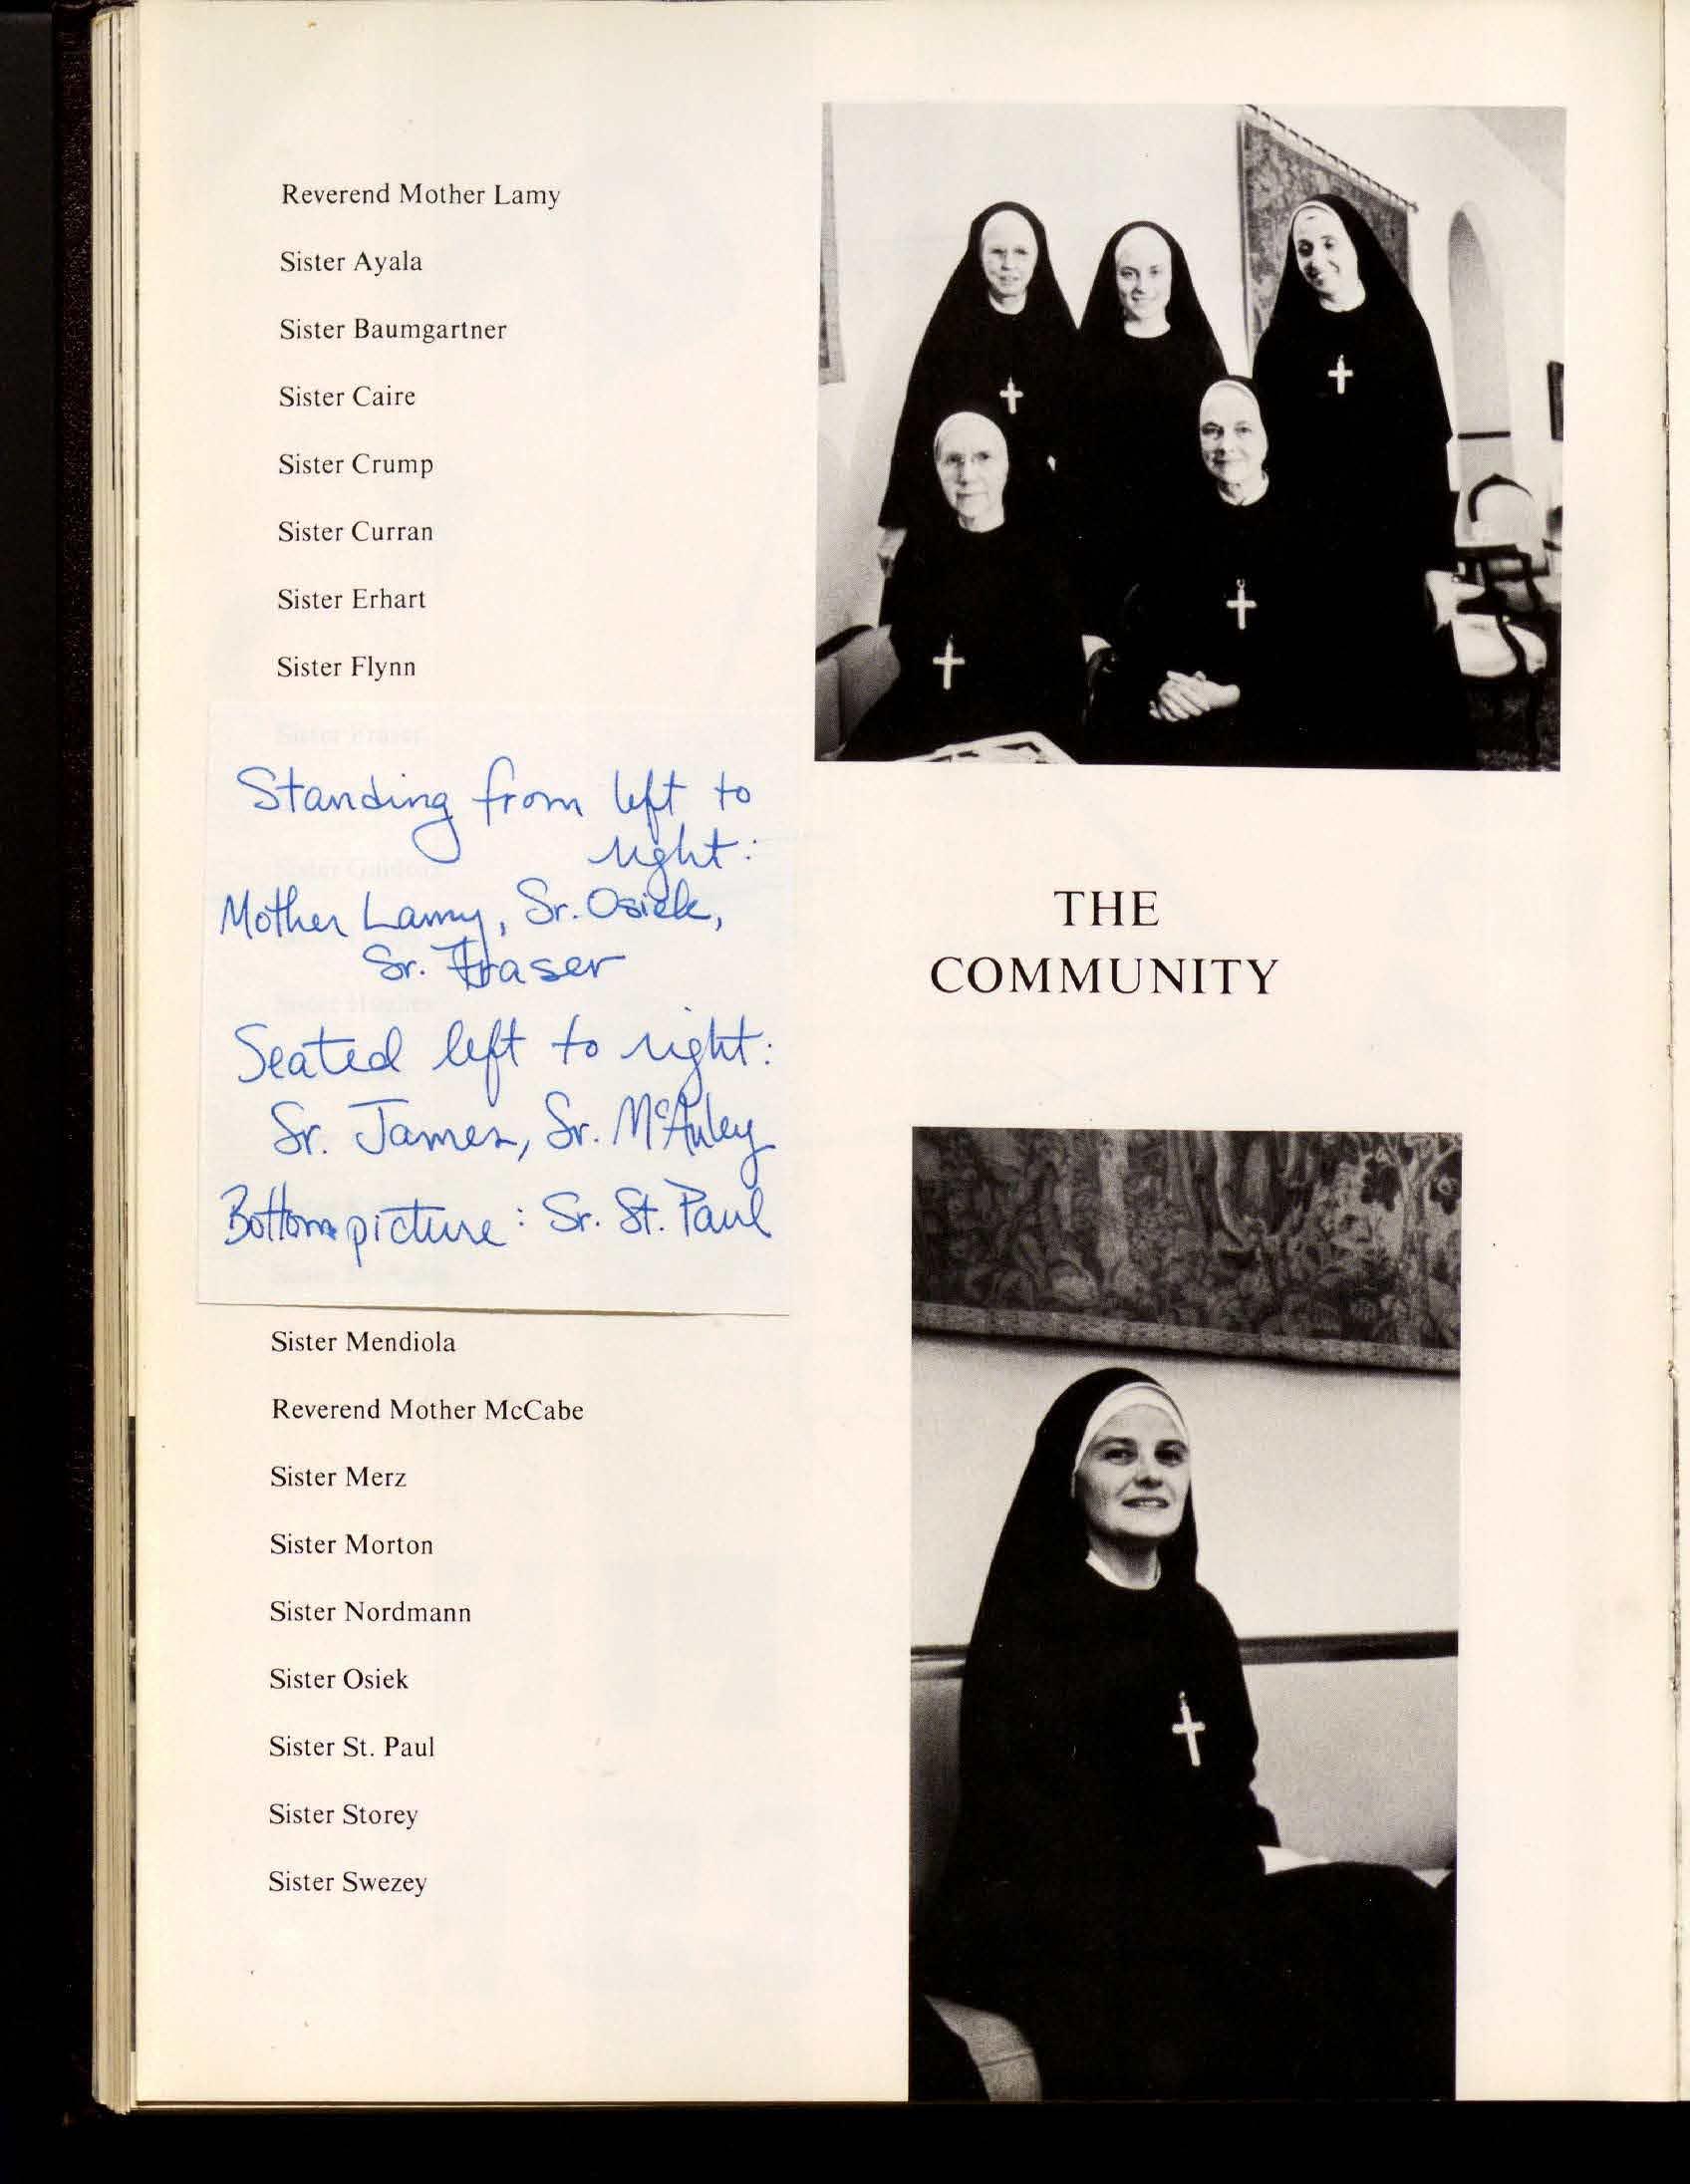 Reverend Mother Lamy
Sister Ayala
Sister Baumgartner
Sister Caire
Sister Crump
Sister Curran
Sister Erhart
Sister Flynn
Sister Fraser
Standing from left to
right:
Mother Lamy, Sr. Osiek,
Sr. Fraser
Seated left to right:
Sr. James, Sr. McAuley
Bottom picture: Sr. St. Paul
Sister Mendiola
Reverend Mother McCabe
Sister Merz
Sister Morton
Sister Nordmann
Sister Osiek
Sister St. Paul
Sister Storey
Sister Swezey
THE
COMMUNITY